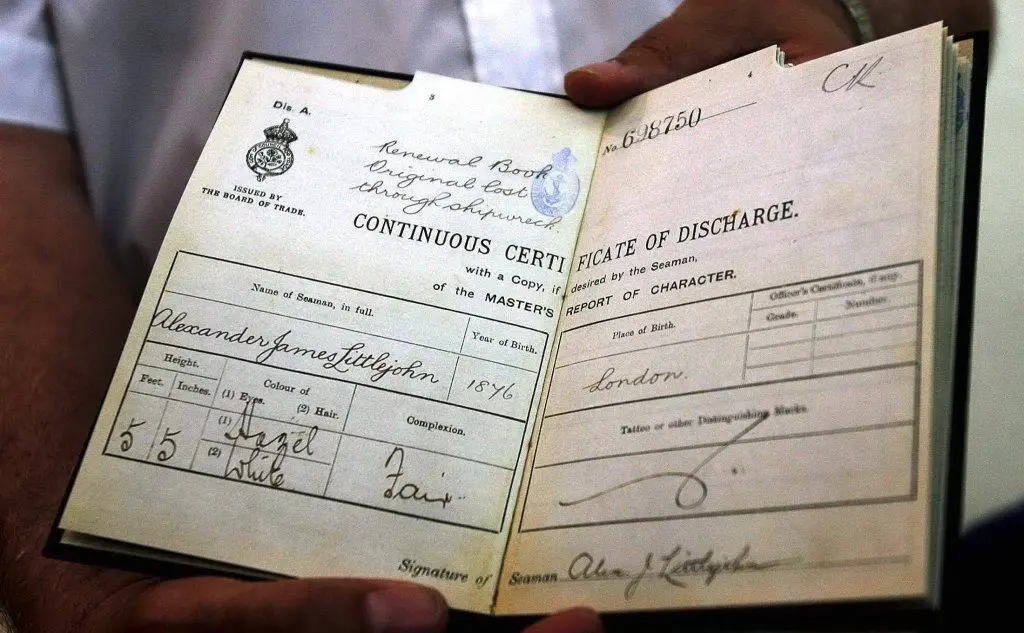 3
4
Dis. A.
CR
ISSUED BY
THE BOARD OF TRADE.
Renewal Book
Original lost
through shipwreck.
No. 698750
CONTINUOUS CERTIFICATE OF DISCHARGE.
with a Copy, if desired by the Seaman,
of the MASTER'S REPORT OF CHARACTER.
Name of Seaman, in full.
Year of Birth.
Alexander James Littlejohn
1876
Place of Birth.
Officer's Certificate, if any.
Grade.
Number.
London.
Height.
Feet.
Inches.
Colour of
(1) Eyes.
(2) Hair.
Complexion.
5
5
(1) Hazel
(2) White
Fair
Tattoo or other Distinguishing Marks.
Signature of Seaman Alex. J Littlejohn